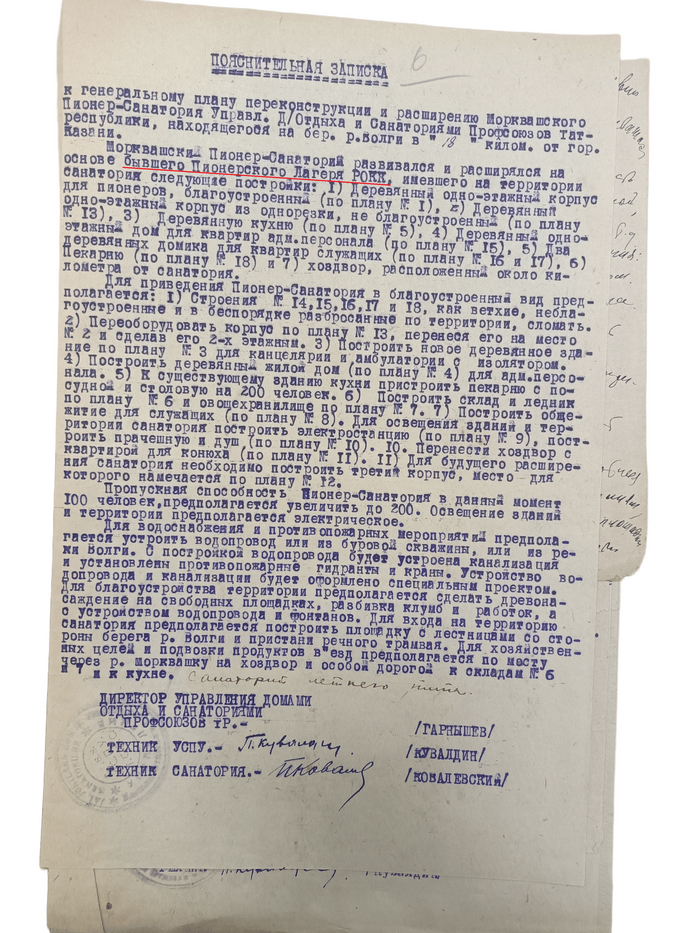 ПОЯСНИТЕЛЬНАЯ ЗАПИСКА
6
к генеральному плану переконструкции и расширению Морквашского
Пионер-Санатория Управл. Д/Отдыха и Санаториями Профсоюзов Тат-
республики, находящегося на бер. р.Волги в " 18 " килом. от гор.
Казани.
Морквашский Пионер-Санаторий развивался и расширялся на
основе бывшего Пионерского Лагеря РОКК, имевшего на территории
санатория следующие постройки: 1) Деревянный одно-этажный корпус
для пионеров, благоустроенный (по плану № 1), 2) Деревянный
одно-этажный корпус из однорезки, не благоустроенный (по плану
№ 13), 3) Деревянную кухню (по плану № 5), 4) Деревянный одно-
этажный дом для квартир адм.персонала (по плану № 15), 5) Два
деревянных домика для квартир служащих (по плану № 16 и 17), 6)
Пекарню (по плану № 18) и 7) хоздвор, расположенный около ки-
лометра от санатория.
Для приведения Пионер-Санатория в благоустроенный вид пред-
полагается: 1) Строения № 14,15,16,17 и 18, как ветхие, небла-
гоустроенные и в беспорядке разбросанные по территории, сломать.
2) Переоборудовать корпус по плану № 13, перенеся его на место
№ 2 и сделав его 2-х этажным. 3) Построить новое деревянное зда-
ние по плану № 3 для канцелярии и амбулатории с изолятором.
4) Построить деревянный жилой дом (по плану № 4) для адм.персо-
нала. 5) К существующему зданию кухни пристроить пекарню с по-
судной и столовую на 200 человек. 6) Построить склад и ледник
по плану № 6 и овощехранилище по плану № 7. 7) Построить обще-
житие для служащих (по плану № 8). Для освещения зданий и тер-
ритории санатория построить электростанцию (по плану № 9), пост-
роить прачешную и душ (по плану № 10). 10. Перенести хоздвор с
квартирой для конюха (по плану № 11). 11) Для будущего расшире-
ния санатория необходимо построить третий корпус, место для
которого намечается по плану № 12.
Пропускная способность Пионер-Санатория в данный момент
100 человек,предполагается увеличить до 200. Освещение зданий
и территории предполагается электрическое.
Для водоснабжения и противопожарных мероприятий предпола-
гается устроить водопровод или из буровой скважины, или из ре-
ки Волги. С постройкой водопровода будет устроена канализация
и установлены противопожарные гидранты и краны. Устройство во-
допровода и канализации будет оформлено специальным проектом.
Для благоустройства территории предполагается сделать древона-
саждение на свободных площадках, разбивка клумб и работок, а
с устройством водопровода и фонтанов. Для входа на территорию
санатория предполагается построить площадку с лестницами со сто-
роны берега р. Волги и пристани речного трамвая. Для хозяйствен-
ных целей и подвозки продуктов в"езд предполагается по мосту
через р. Морквашку на хоздвор и особой дорогой к складам № 6
и 7 и к кухне. Санаторий летнего типа.
ДИРЕКТОР УПРАВЛЕНИЯ ДОМАМИ
ОТДЫХА И САНАТОРИЯМИ
ПРОФСОЮЗОВ ТР.- /ГАРНЫШЕВ/
ТЕХНИК УСПУ.- П.Кувалдин /КУВАЛДИН/
ТЕХНИК САНАТОРИЯ.- /КОВАЛЕВСКИЙ/